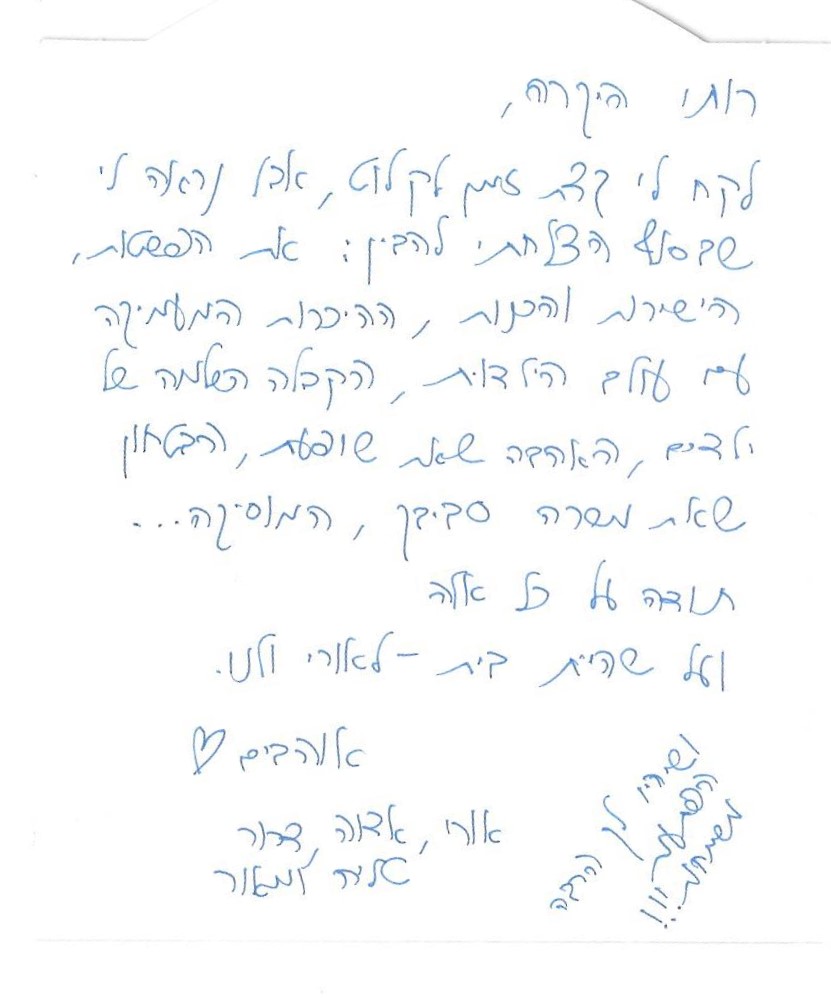 רותי היקרה,
לקח לי קצת זמן לקלוט, אבל נראה לי
שבסוף הצלחתי להבין: את הפשטות,
הישירות והכנות, ההיכרות המעמיקה
עם עולם הילדות, הקבלה השלמה של
ילדים, האהבה שאת שופעת, הבטחון
שאת משרה סביבך, המוסיקה...
תודה על כל אלה
ועל שהיית בית - לאורי ולנו.
אוהבים ♡
אורי, אלווה, דרור
ומאור
ושיהיו לך הרבה
הפתעות
משמחות!!!